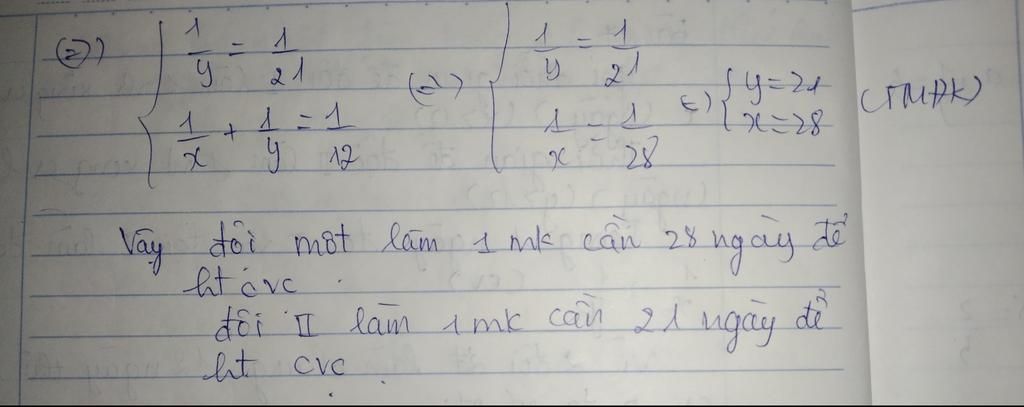 (=) { 1/y = 1/21 (=) { 1/y = 1/21 (=) { y = 21 (TMĐK)
1/x + 1/y = 1/12 1/x = 1/28 x = 28
Vậy đội một làm 1 mk cần 28 ngày để
ht cvc.
đội II làm 1 mk cần 21 ngày để
ht cvc.